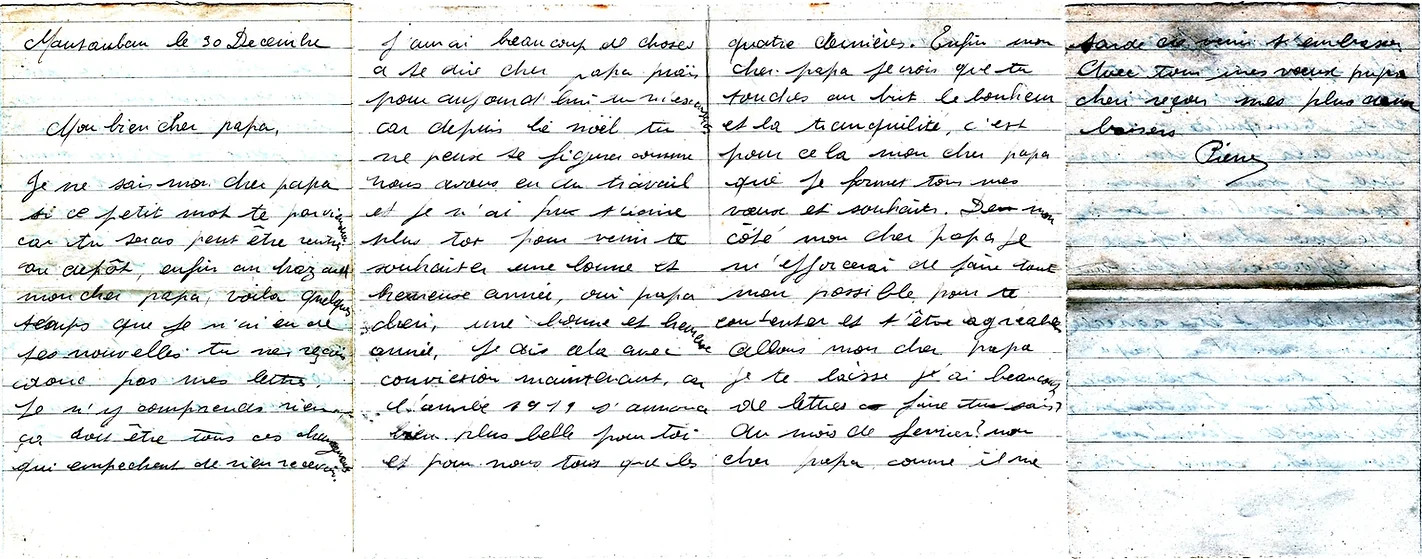 Montauban le 30 Decembre
Mon bien cher papa,
Je ne sais mon cher papa
si ce petit mot te parviendra
car tu seras peut être rentré
au depôt, enfin au hazard
mon cher papa, voila quelques
temps que je n'ai eu de
tes nouvelles tu ne reçois
donc pas mes lettres.
Je n'y comprends rien
ça doit être tous ces changements
qui empechent de rien recevoir.
J'aurai beaucoup de choses
a te dire cher papa mais
pour aujourd'hui
car depuis le noël tu
ne peux te figurer comme
nous avons eu du travail
et je n'ai pu t'ecrire
plus tot pour venir te
souhaiter une bonne et
heureuse année, oui papa
cheri, une bonne et heureuse
année, je dis cela avec
conviction maintenant, car
l'année 1919 s'annonce
bien plus belle pour toi
et pour nous tous que les
quatre dernières. Enfin mon
cher papa je crois que tu
touches au but le bonheur
et la tranquilité, c'est
pour cela mon cher papa
que je formes tous mes
vœux et souhaits. De mon
côté mon cher papa je
m'efforcerai de faire tout
mon possible pour te
contenter et t'être agreable
Allons mon cher papa
je te laisse j'ai beaucoup
de lettres a faire tu sais?
Au mois de fevrier? mon
cher papa comme il me
tarde de venir t'embrasser
Avec tous mes vœux papa
cheri reçois mes plus doux
baisers
Pierre